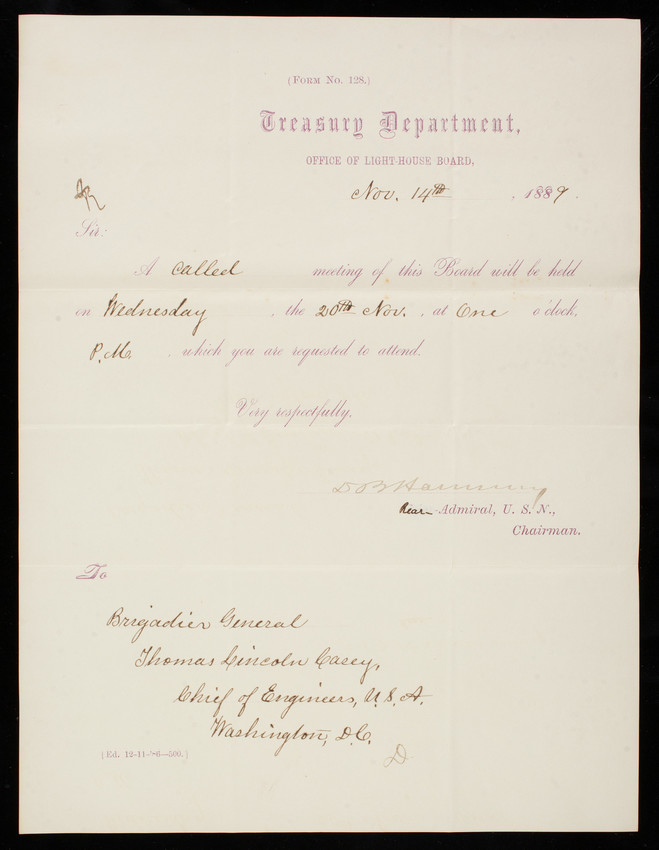 (Form No. 128.)
Treasury Department,
OFFICE OF LIGHT-HOUSE BOARD,
Nov. 14th, 1889.
Sir:
A called meeting of this Board will be held
on Wednesday, the 20th Nov., at One o'clock,
P.M. which you are requested to attend.
Very respectfully,
D B Harmony
Rear-Admiral, U. S. N.,
Chairman.
To
Brigadier General
Thomas Lincoln Casey,
Chief of Engineers, U.S.A.
Washington, D.C.
(Ed. 12-11-'86—500.)
D